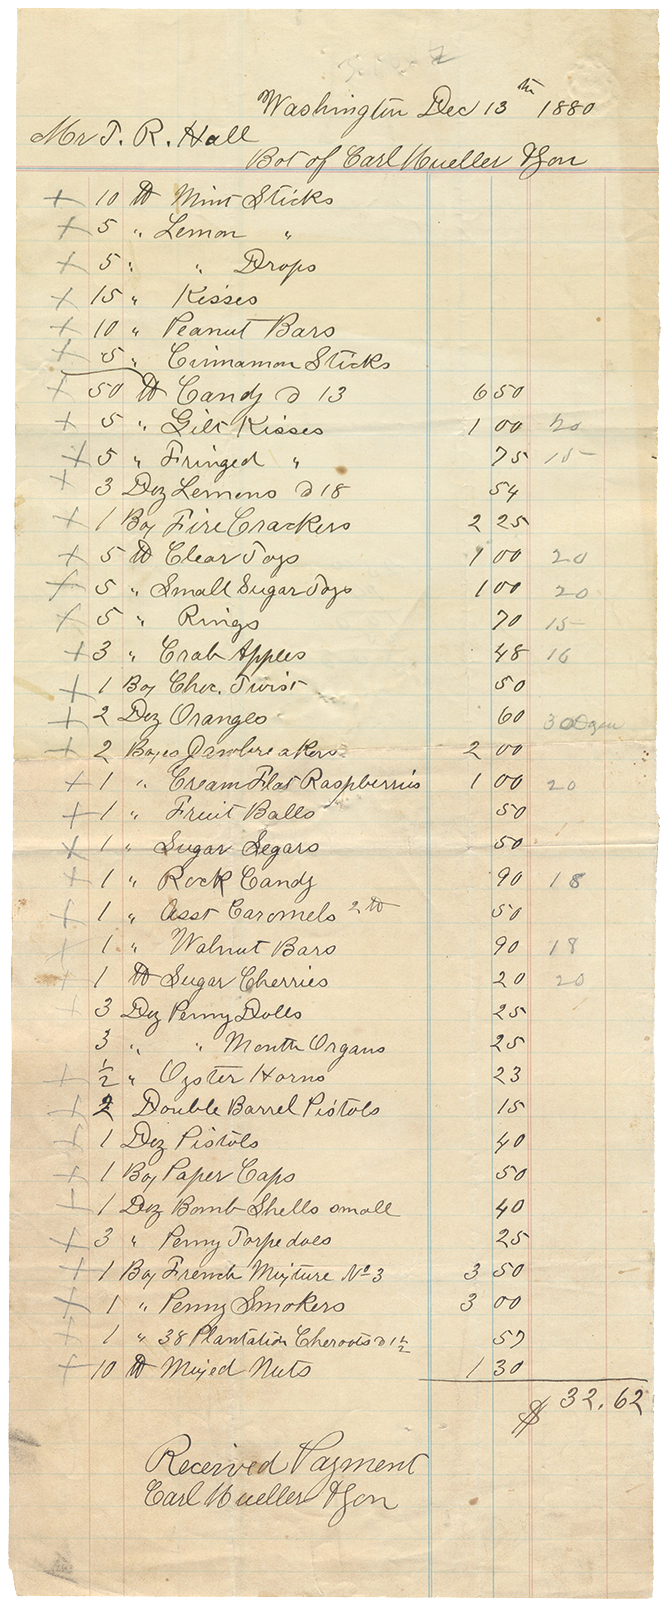 Washington Dec 13th 1880
Mr T. R. Hall
Bot of Carl Mueller & Son
+ 10 lb Mint Sticks
+ 5 " Lemon "
+ 5 " " Drops
+ 15 " Kisses
+ 10 " Peanut Bars
+ 5 " Cinnamon Sticks
50 lb Candy @ 13 6 50
+ 5 " Gilt Kisses 1 00 20
+ 5 " Fringed " 75 15
+ 3 Doz Lemons @ 18 54
+ 1 Box Fire Crackers 2 25
+ 5 lb Clear Toys 1 00 20
+ 5 " Small Sugar Toys 1 00 20
+ 5 " Rings 70 15
+ 3 " Crab Apples 48 16
+ 1 Box Choc. Twist 50
+ 2 Doz Oranges 60 30
+ 2 Boxes Jawbreakers 2 00
+ 1 " Cream Flat Raspberries 1 00 20
+ 1 " Fruit Balls 50
+ 1 " Sugar Segars 50
+ 1 " Rock Candy 90 18
+ 1 " Asst Caromels 2 lb 50
+ 1 " Walnut Bars 90 18
+ 1 lb Sugar Cherries 20 20
+ 3 Doz Penny Dolls 25
3 " " Month Organs 25
+ 1/2 " Oyster Horns 23
+ 2 Double Barrel Pistols 15
+ 1 Doz Pistols 40
+ 1 Box Paper Caps 50
+ 1 Doz Bomb Shells small 40
+ 3 " Penny Torpedoes 25
+ 1 Box French Mixture No 3 3 50
+ 1 " Penny Smokers 3 00
+ 1 " 38 Plantation Cheroots @ 1 1/2 57
+ 10 lb Mixed Nuts 1 30
$ 32.62
Received Payment
Carl Mueller & Son